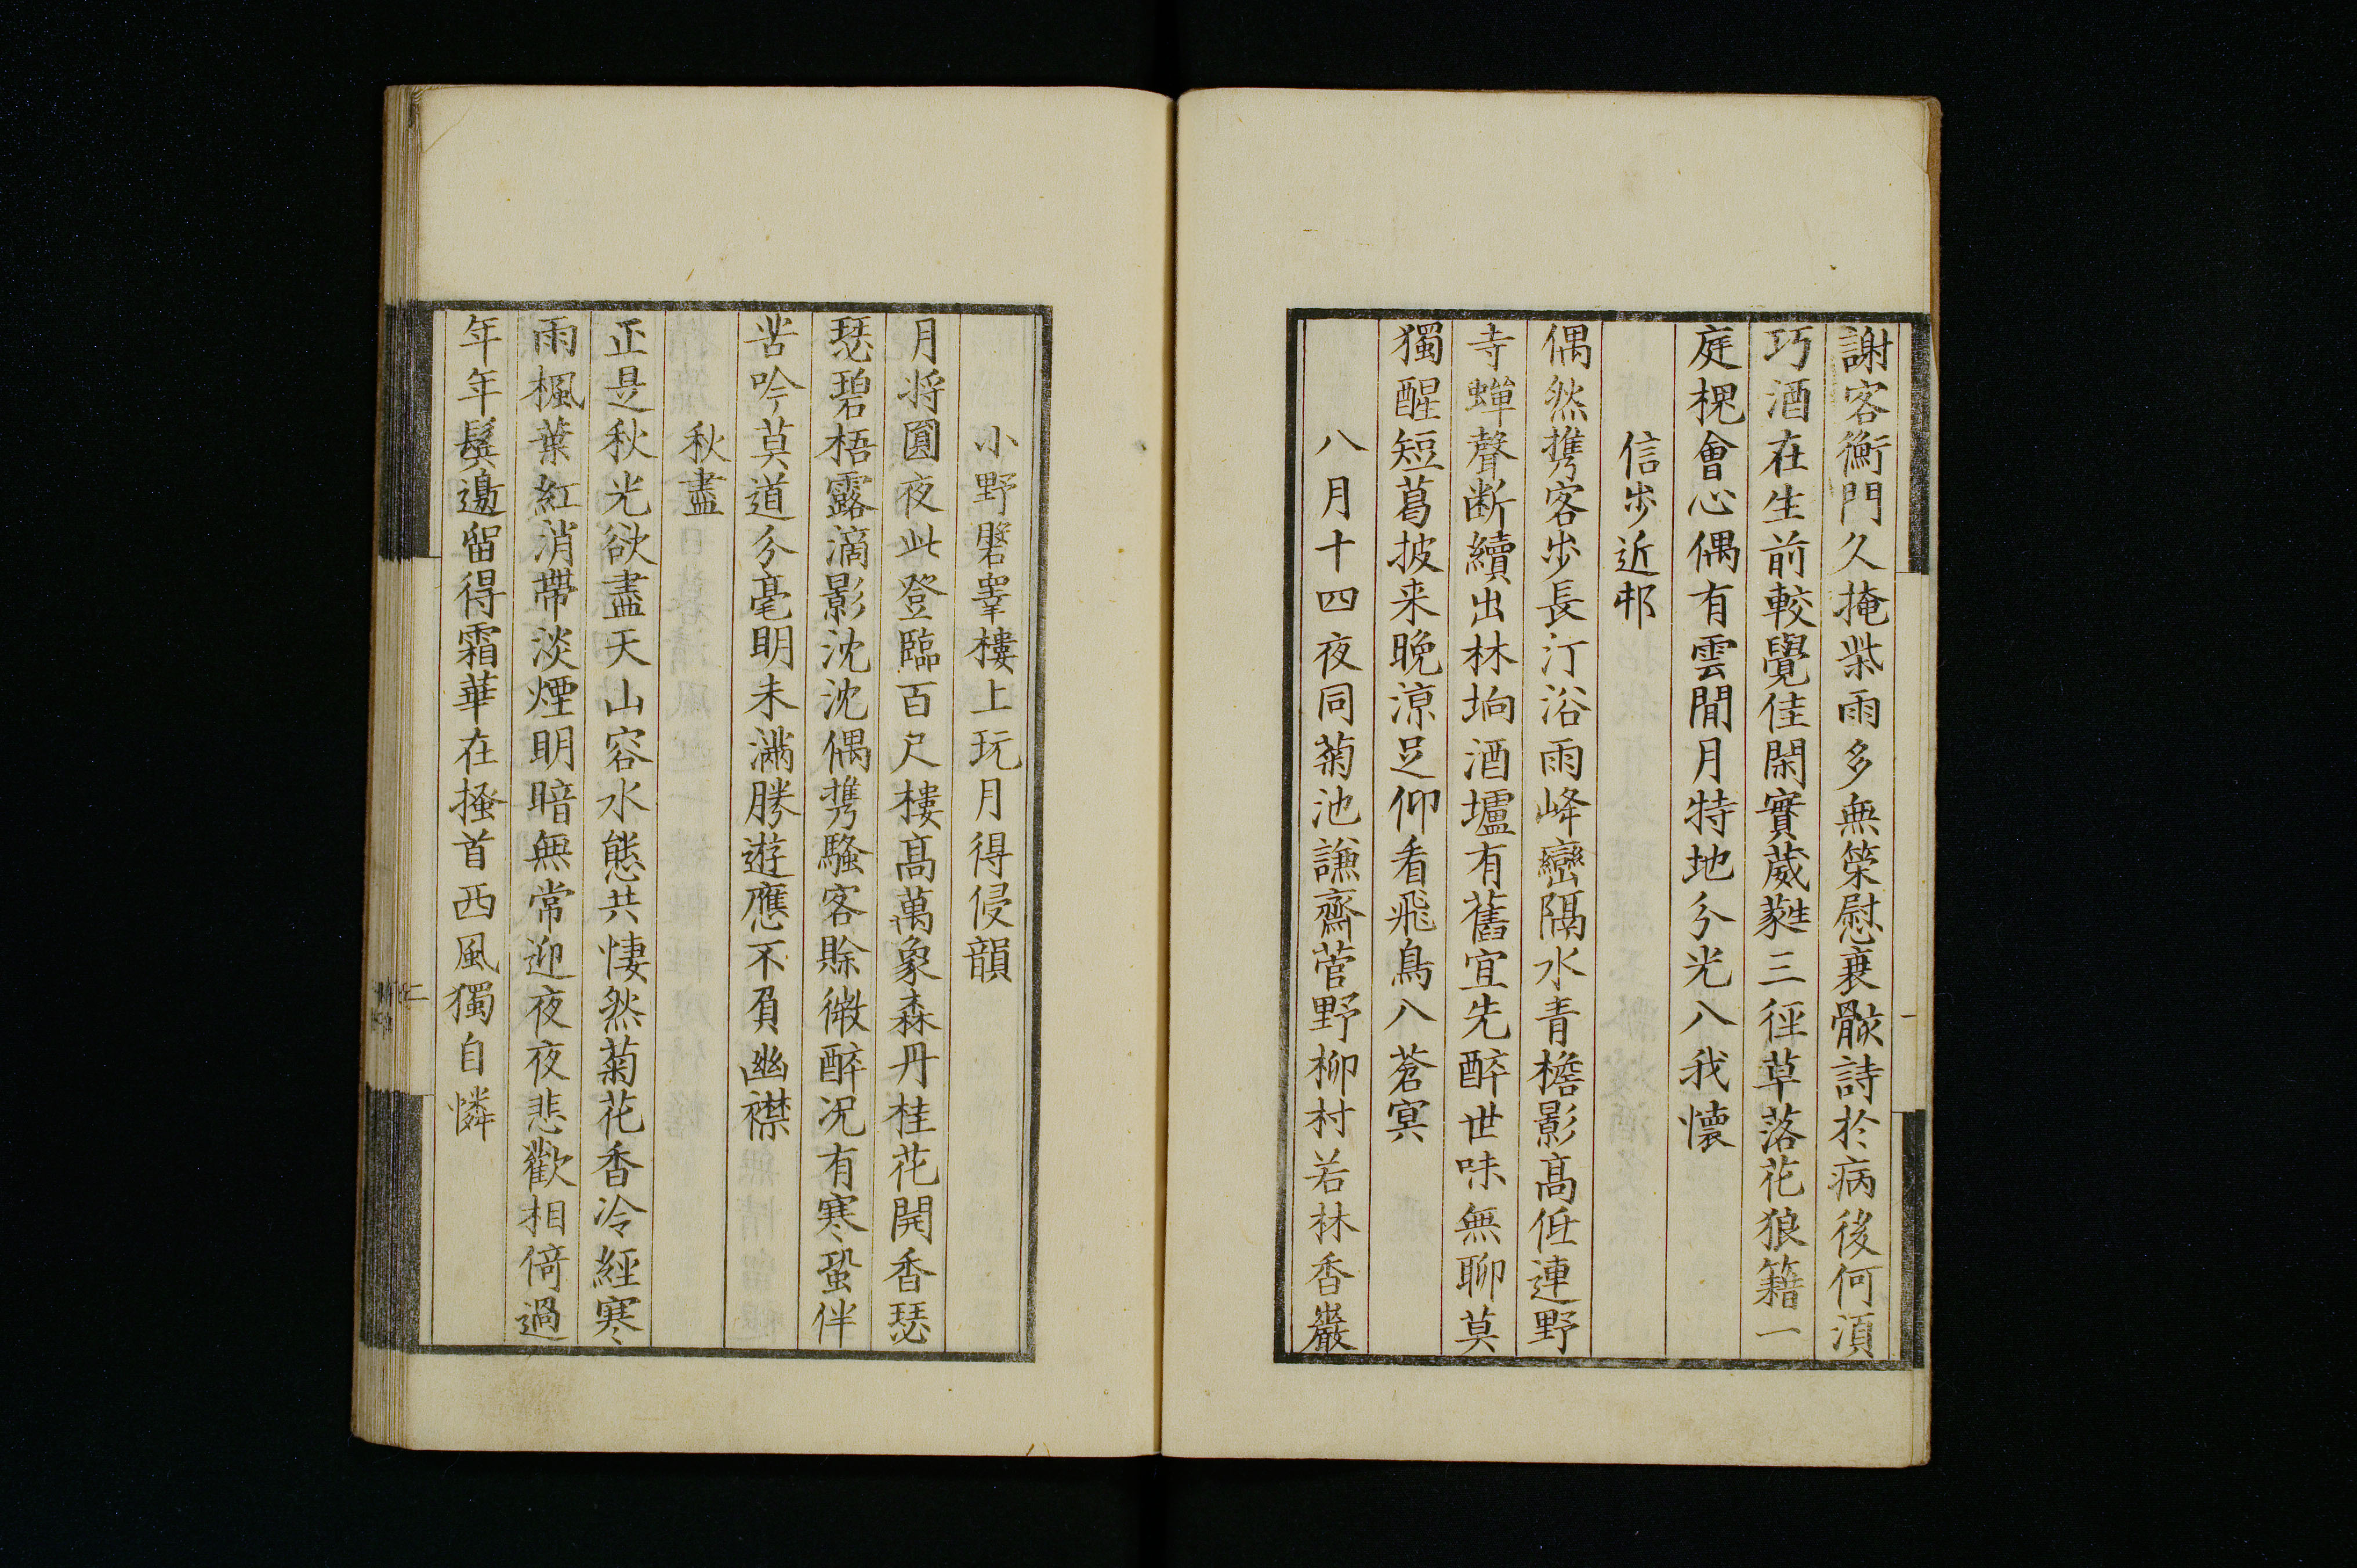 謝客衡門久掩柴雨多無策慰衰骸詩於病後何須
巧酒在生前較覺佳閑實葳蕤三徑草落花狼籍一
庭槐會心偶有雲間月特地分光入我懷
信步近邨
偶然携客步長汀浴雨峰巒隔水青檐影高低連野
寺蟬聲断續出林坰酒壚有舊宜先醉世味無聊莫
獨醒短葛披来晚涼足仰看飛鳥入蒼冥
八月十四夜同菊池謙齋菅野柳村若林香巖
小野磐睾樓上玩月得侵韻
月将圓夜此登臨百尺樓高萬象森丹桂花開香瑟
瑟碧梧露滴影沈沈偶携騷客賒微醉况有寒蛩伴
苦吟莫道分毫明未滿勝遊應不負幽襟
秋盡
正是秋光欲盡天山容水態共悽然菊花香冷經寒
雨楓葉紅消帶淡煙明暗無常迎夜夜悲歡相倚過
年年鬓邊留得霜華在搔首西風獨自憐